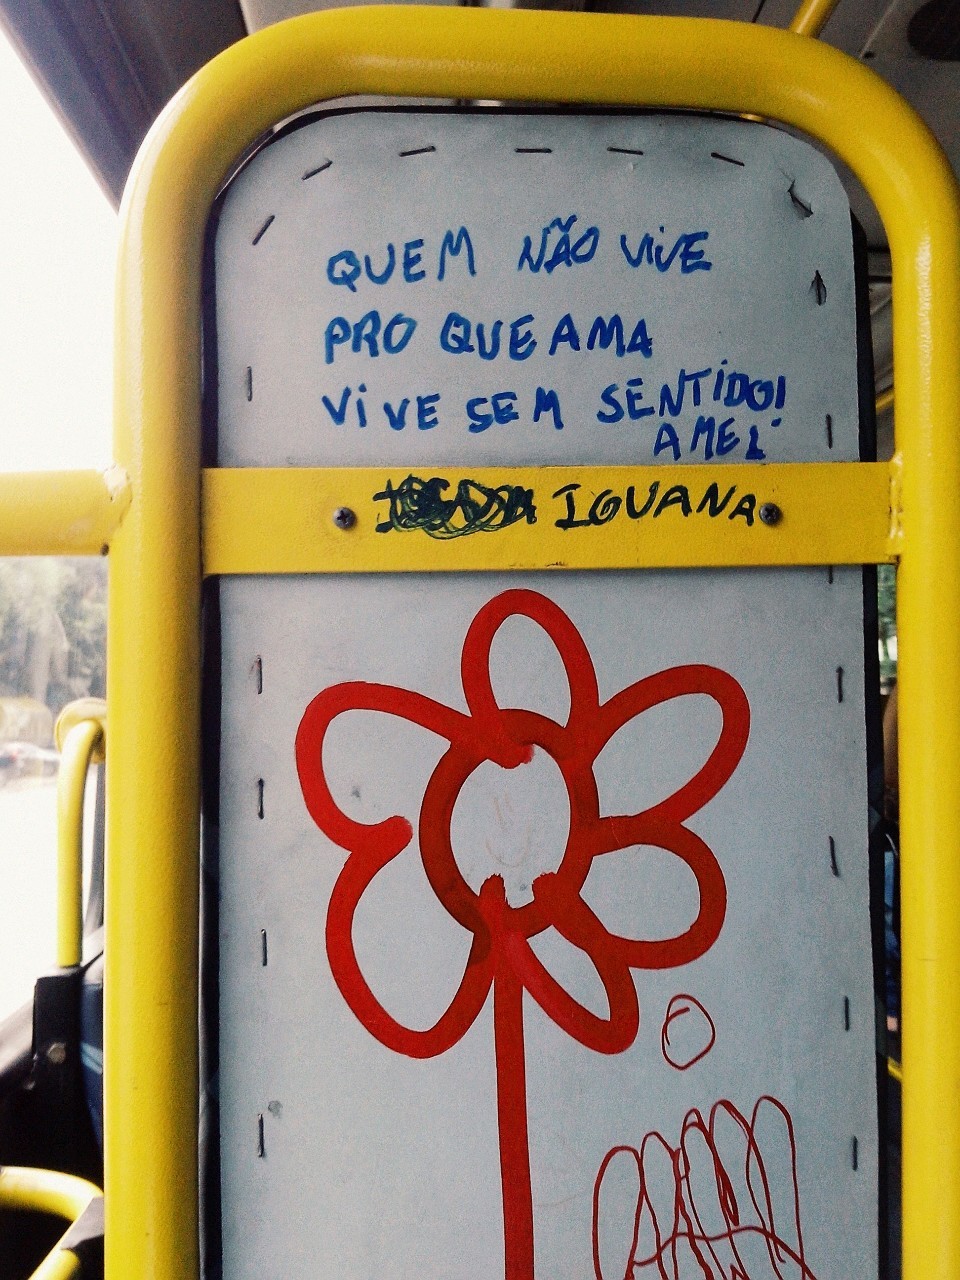 QUEM NÃO ViVE
PRO QUE AMA
ViVE SEM SENTiDO!
AMEL
IGUANA